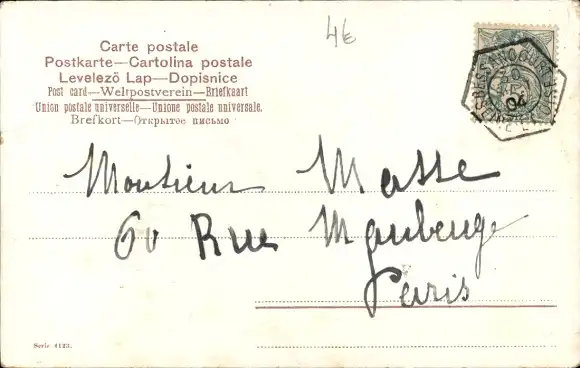 4€
Carte postale
Postkarte—Cartolina postale
Levelező Lap—Dopisnice
Post card—Weltpostverein—Briefkaart
Union postale universelle—Unione postale universale.
Brefkort—Открытое письмо
04
Monsieur Masse
60 Rue Maubeuge
Paris
Serie 4123.